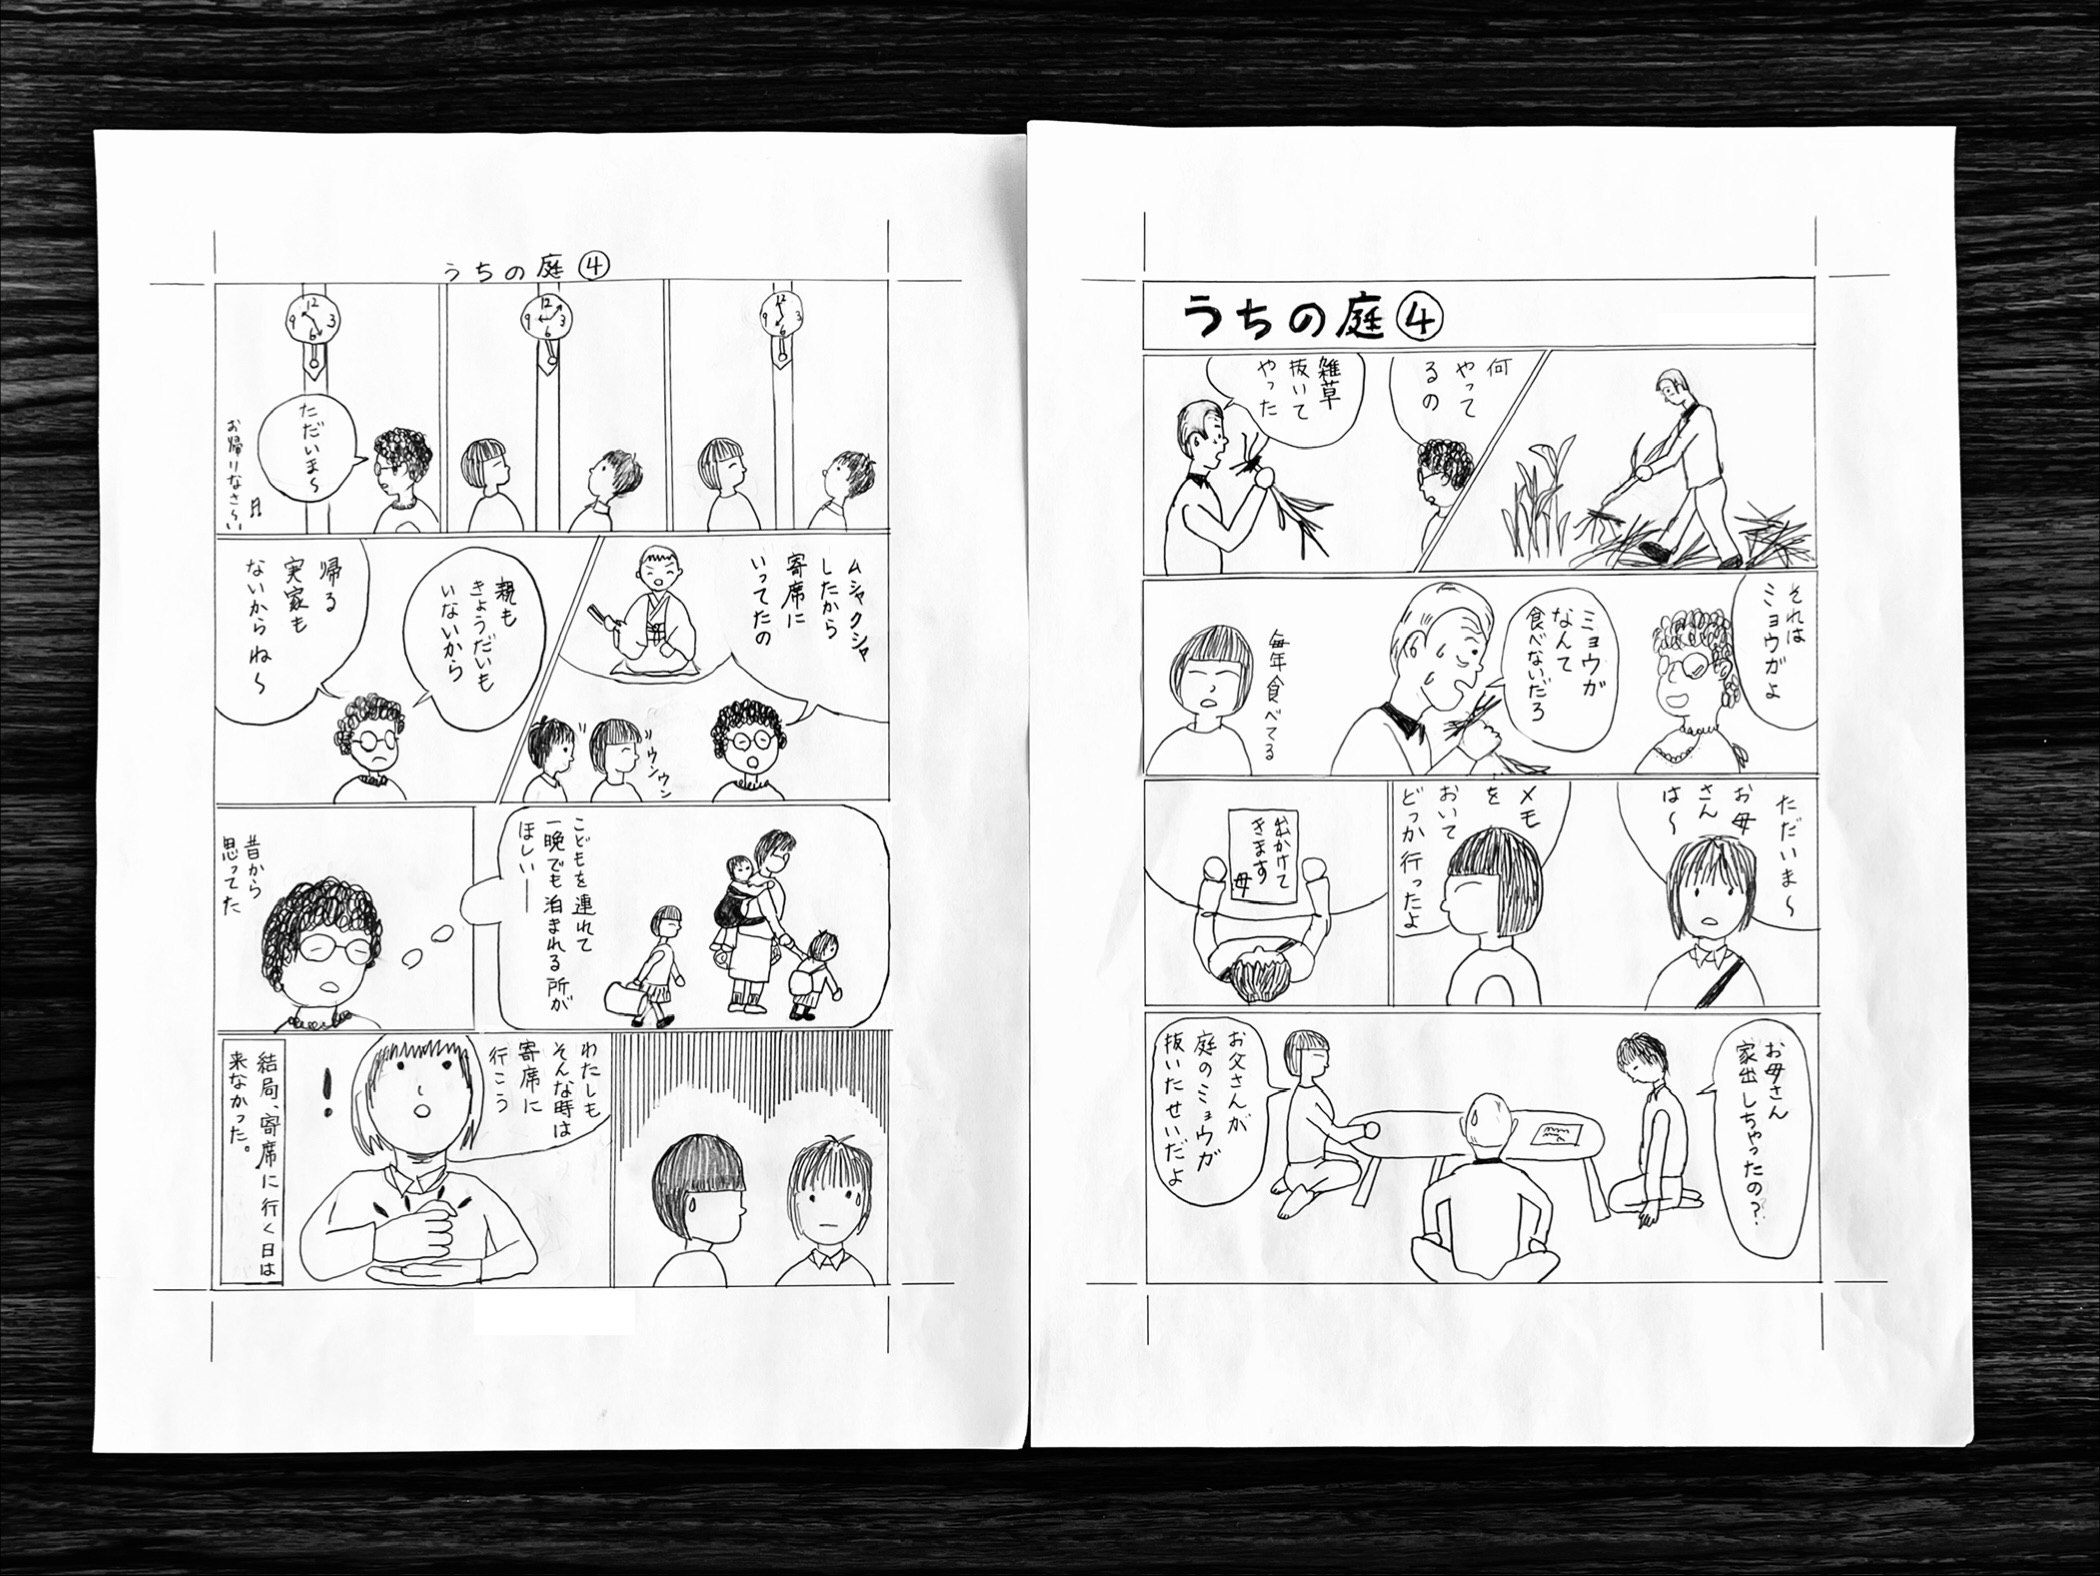 うちの庭④
何
やって
るの
雑草
抜いて
やった
それは
ミョウガよ
ミョウガ
なんて
食べないだろ
毎年食べてる
ただいま〜
お母
さん
は〜
メモ
を
おいて
どっか行ったよ
出かけて
きます
母
お母さん
家出しちゃったの?
お父さんが
庭のミョウガ
抜いたせいだよ
うちの庭④
12
3
6
9
12
3
6
9
12
3
6
9
ただいま〜
お帰りなさ〜い
ムシャクシャ
したから
寄席に
いってたの
ウンウン
親も
きょうだいも
いないから
帰る
実家も
ないからね〜
こどもを連れて
一晩でも泊まれる所が
ほしい──
昔から
思ってた
わたしも
そんな時は
寄席に
行こう
!
結局、寄席に行く日は
来なかった。